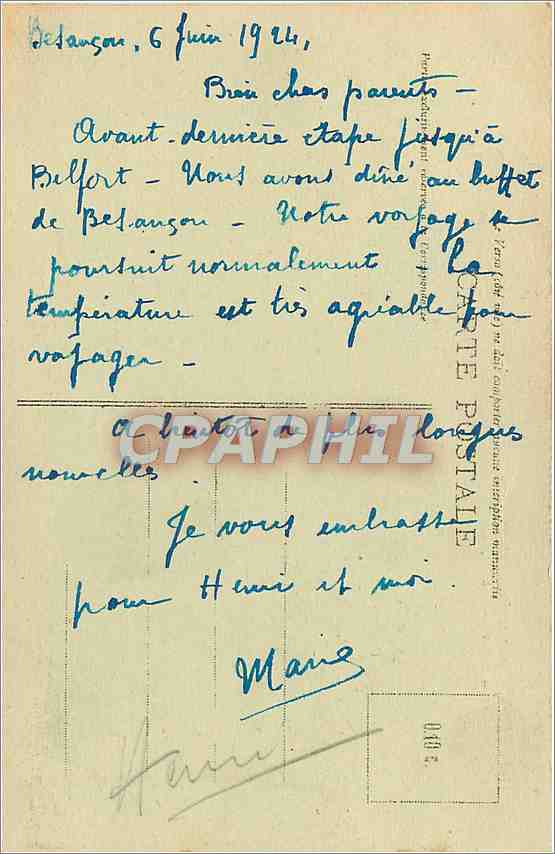 Besançon, 6 Juin 1924,
Bien chers parents -
Avant-dernière étape jusqu'à
Belfort - Nous avons dîné au buffet
de Besançon - Notre voyage se
poursuit normalement La
température est très agréable pour
voyager -
A bientôt de plus longues
nouvelles.
Je vous embrasse
pour Henri et moi.
Marie
Henri
CARTE POSTALE
Partie exclusivement réservée à la Correspondance
CPAPHIL